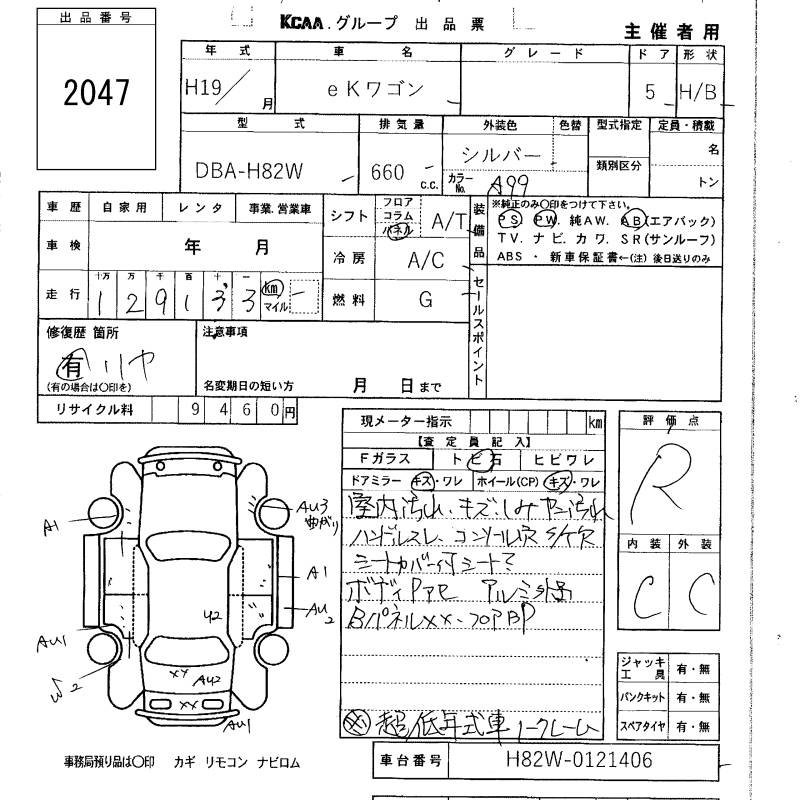 出品番号
2047
KCAA.グループ 出品票
主催者用
年式 車名 グレード ドア 形状
H19/月 eKワゴン 5 H/B
型式 排気量 外装色 色替 型式指定 定員・積載
DBA-H82W 660 c.c. シルバー 類別区分 名
カラーNo. A99 トン
車歴 自家用 レンタ 事業.営業車
シフト フロア コラム パネル A/T
装備品
※純正のみ○印をつけて下さい。
PS PW. 純AW. AB(エアバック)
TV. ナビ. カワ. SR(サンルーフ)
ABS ・ 新車保証書←(注) 後日送りのみ
車検 年 月
冷房 A/C
走行 十万 万 千 百 十 一
1 2 9 1 3 3 km マイル
燃料 G
セールスポイント
修復歴 箇所
有 リヤ
(有の場合は○印を)
注意事項
名変期日の短い方 月 日まで
リサイクル料 9460円
現メーター指示 km
【査定員記入】
Fガラス トビ石 ヒビワレ
ドアミラー キズ・ワレ ホイール(CP) キズ・ワレ
室内汚れ、キズ、シミヤニ汚れ
ハンドルスレ、コンソール穴
シートカバー付シート?
ボディ アルミ
BパネルXX・フロアBP
超低年式車ノークレーム
評価点
R
内装 外装
C C
ジャッキ工具 有・無
パンクキット 有・無
スペアタイヤ 有・無
A1
AU3
曲がり
A1
AU2
U2
AU1
W2
XX
AU2
XX
AU1
事務局預り品は○印 カギ リモコン ナビロム
車台番号 H82W-0121406